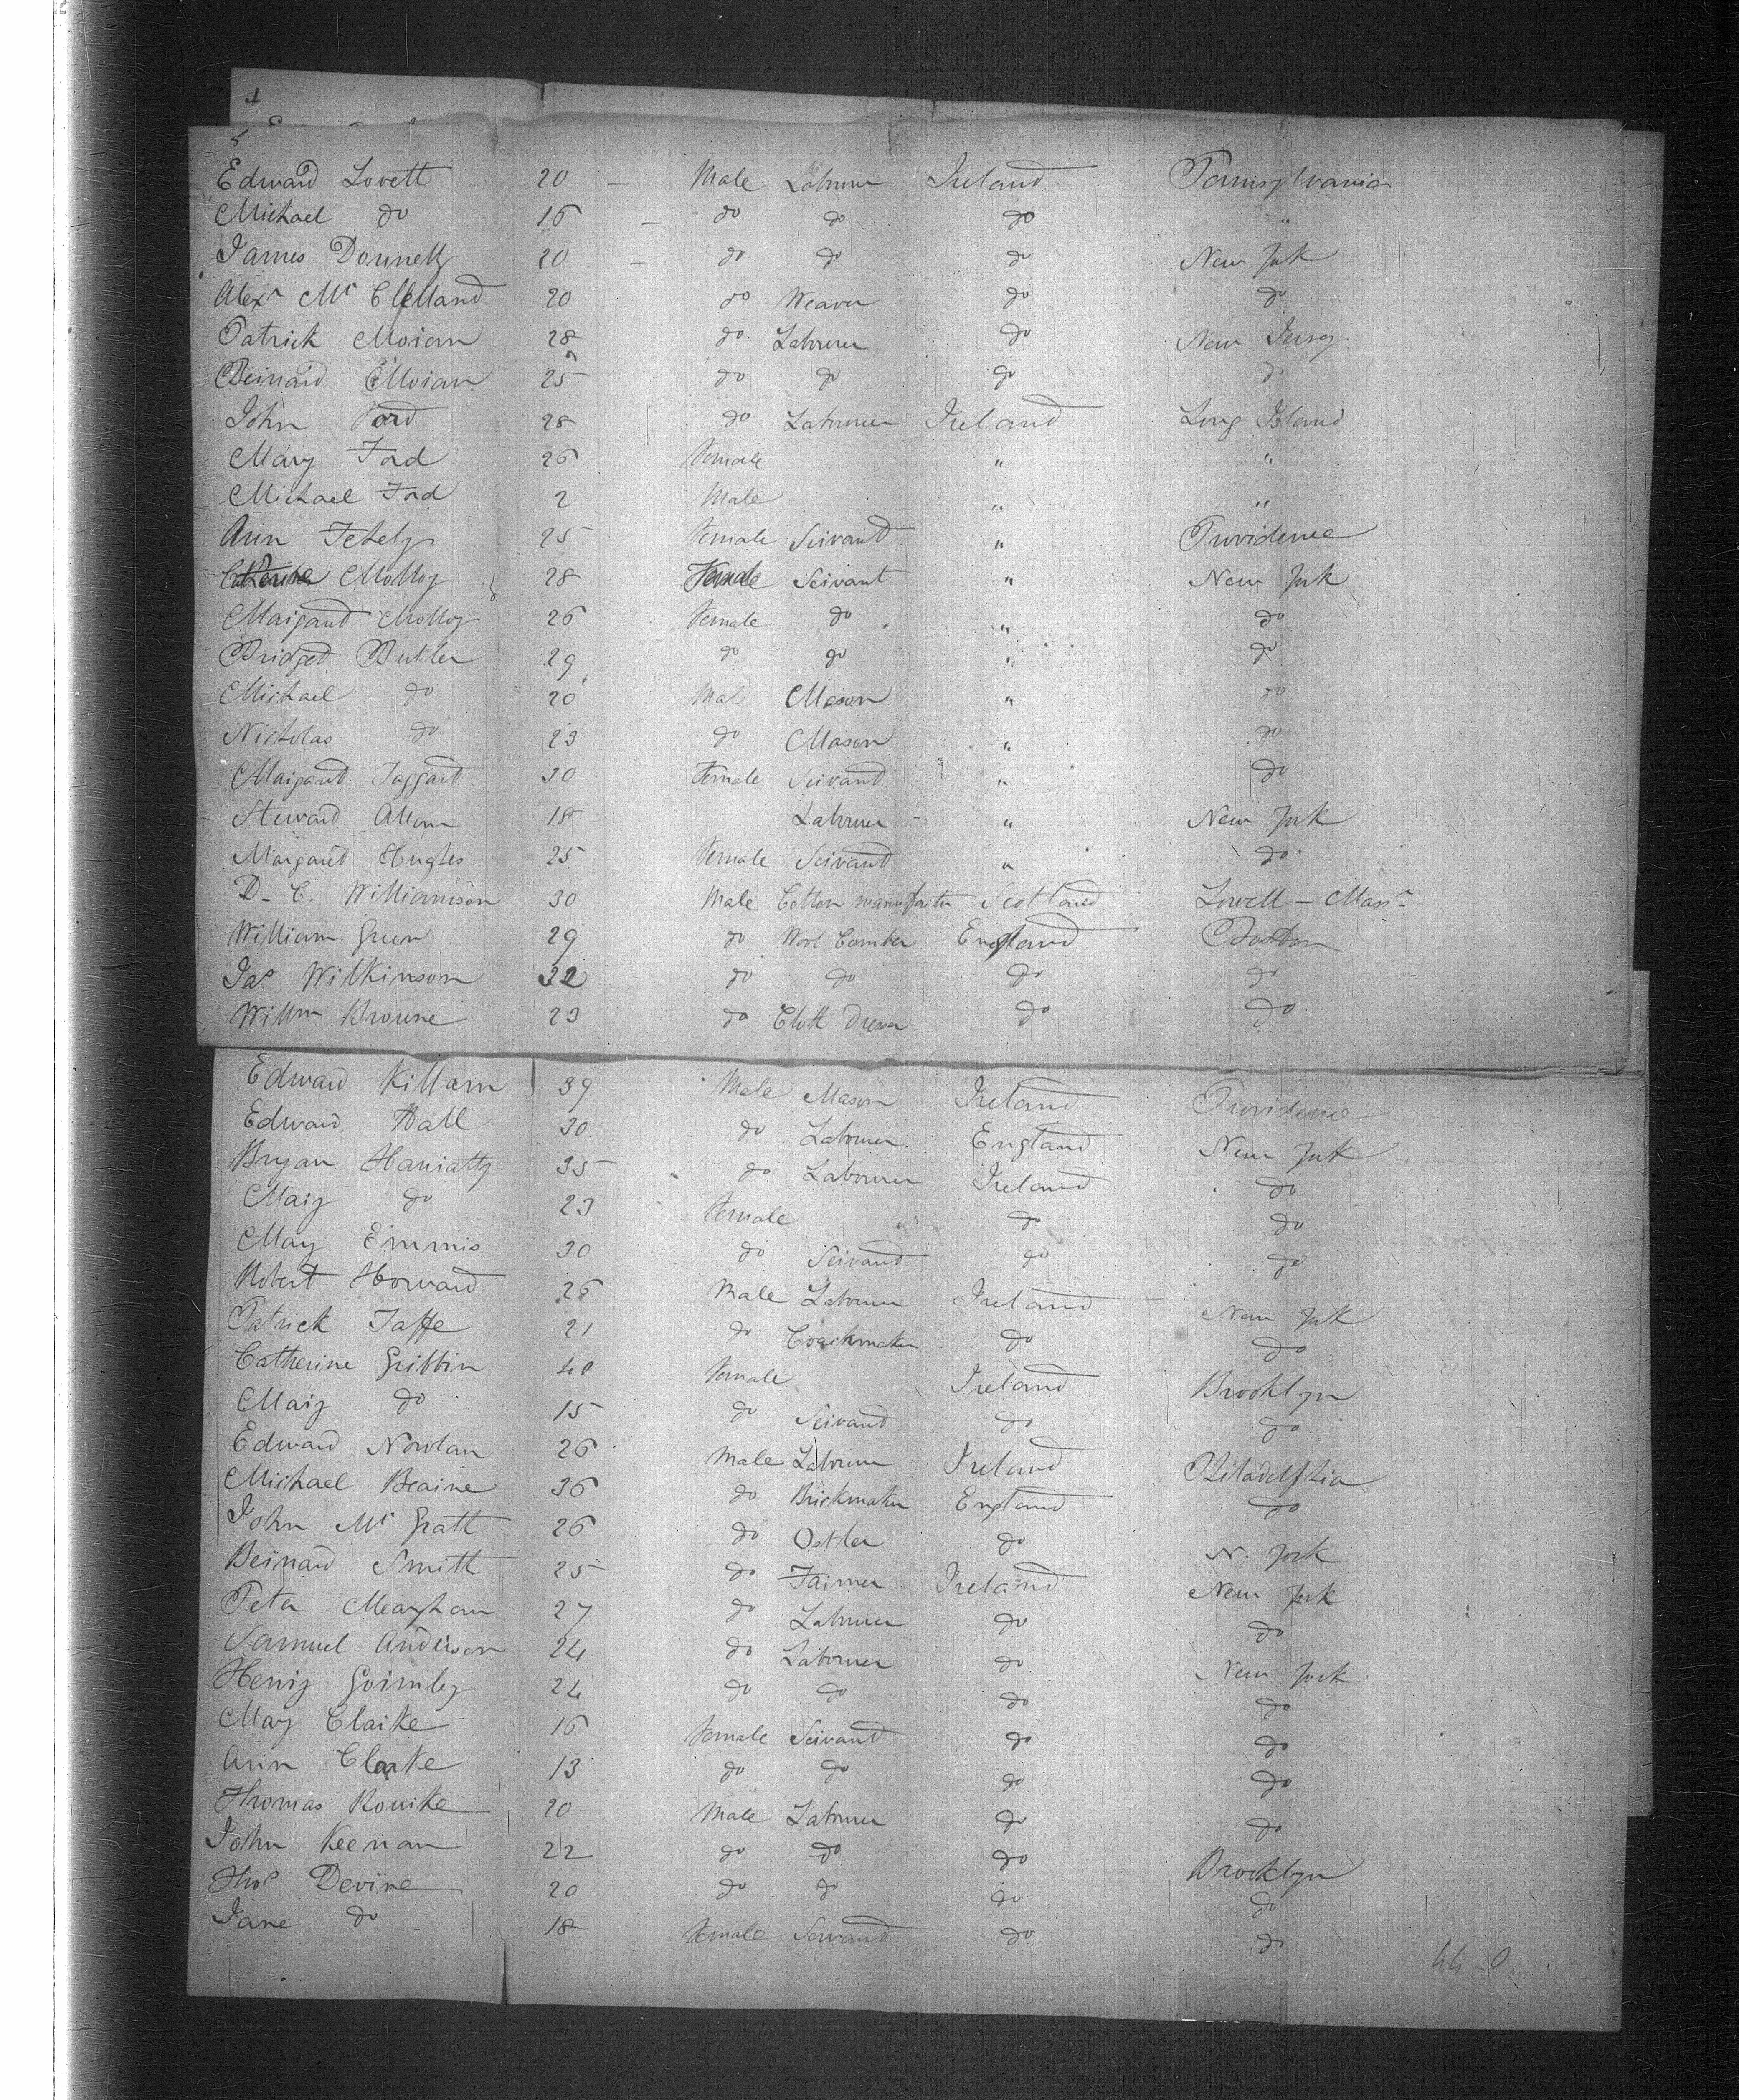 5
Edward Lovett 20 — Male Labourer Ireland Pennsylvania
Michael do 16 — do do do "
James Donnelly 20 — do do do New York
Alexr Mc Clelland 20 do Weaver do do
Patrick Moran 28 do Labourer do New Jersey
Bernard Moran 25 do do do do
John Ford 28 do Labourer Ireland Long Island
Mary Ford 26 Female " "
Michael Ford 2 Male " "
Ann Fehely 25 Female Servant " Providence
Catherine Molloy 28 Female Servant " New York
Margaret Molloy 26 Female do " do
Bridget Butler 29 do do " do
Michael do 20 Male Mason " do
Nicholas do 23 do Mason " do
Margaret Taggart 30 Female Servant " do
Steward Allan 18 Labourer " New York
Margaret Hughes 25 Female Servant " do
D. C. Williamson 30 Male Cotton manufacter Scotland Lowell — Mass
William Green 29 do Wool Comber England Boston
Jas. Wilkinson 32 do do do do
Willm Browne 23 do Cloth Dresser do do
Edward Killarn 39 Male Mason Ireland Providence
Edward Hall 30 do Labourer England New York
Bryan Harratty 35 do Labourer Ireland do
Mary do 23 Female do do
Mary Emmis 30 do Servant do do
Robert Horward 26 Male Labourer Ireland New York
Patrick Jaffe 21 do Coachmaker do do
Catherine Gribbin 40 Female Ireland Brooklyn
Mary do 15 do Servant do do
Edward Nowlan 26 Male Labourer Ireland Philadelphia
Michael Bearne 36 do Brickmaker England do
John Mc Grath 26 do Ostler do N. York
Bernard Smith 25 do Farmer Ireland New York
Peter Meaghan 27 do Labourer do do
Samuel Anderson 24 do Labourer do New York
Henry Gormley 24 do do do do
Mary Clarke 16 Female Servant do do
Ann Clarke 13 do do do do
Thomas Rourke 20 Male Labourer do do
John Keenan 22 do do do Brooklyn
Thos Devine 20 do do do do
Jane do 18 Female Servant do do
44-0